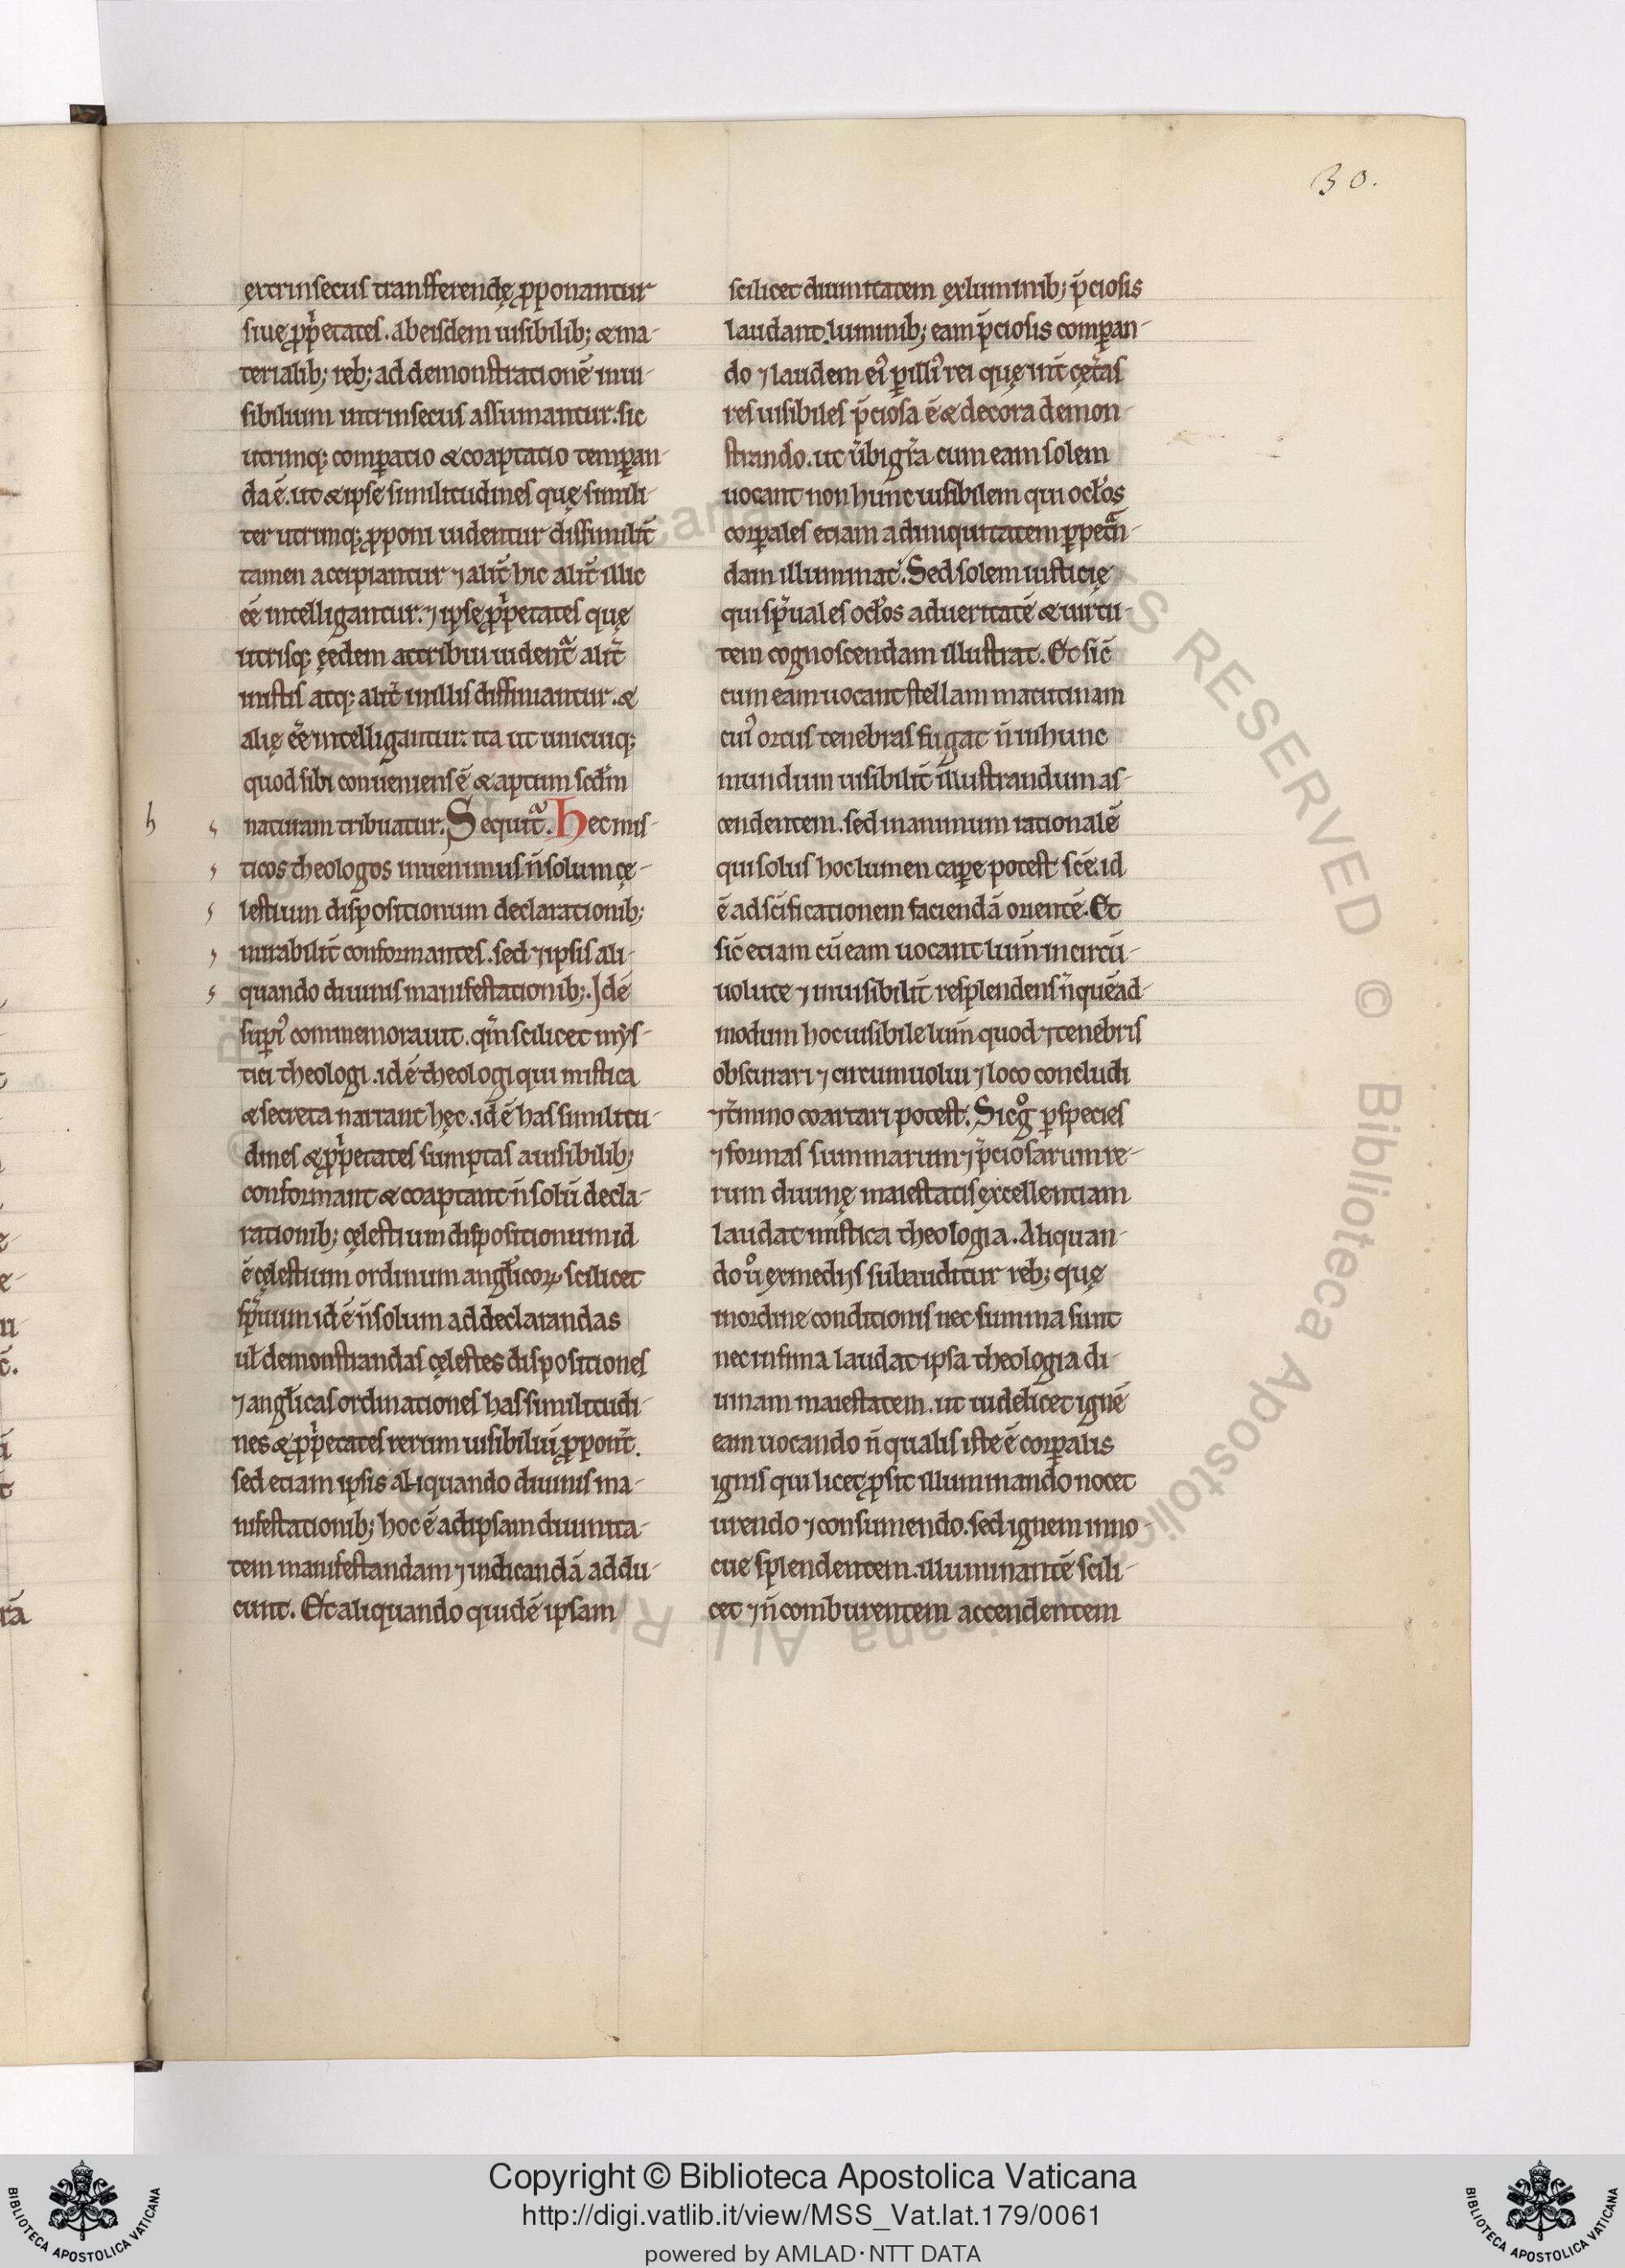 30.
extrinsecus transferendę ꝓponantur
siuę ꝓpͥetates. ab eisdem uisibilib; & ma-
terialib; reb; ad demonstrationē inui-
sibilium intrinsecus assumantur. sic
utrinq; comꝑatio & coaptatio temꝑan-
da ē. ut & ipse similitudines quę simili-
ter utrinq; ꝓponi uidentur dissimilit̄
tamen accipiantur ⁊ alit̄ hic alit̄ illic
eē intelligantur. ⁊ ipsę ꝓpͥetates quę
utrisq; ęedem attribui uident᷑ alit̄
in istis atq; alit̄ in illis diffiniantur. &
alię eē intelligantur. ita ut unicuiq;
quod sibi conueniens ē & aptum scd̄m
h naturam tribuatur. Sequit᷑. Hec mis-
ticos theologos inuenimus n̄ solum cę-
lestium dispositionum declarationib;
mirabilit̄ conformantes. sed ⁊ ipsis ali-
quando diuinis manifestationib;. Idē
supͥꝰ commemorauit. qm̄ scilicet mys-
tici theologi. id ē theologi qui mistica
& secreta narrant hęc. id ē has similitu-
dines & ꝓpͥetates sumptas a uisibilib;
conformant & coaptant n̄ solū decla-
rationib; cęlestium dispositionum id
ē cęlestium ordinum angl̄icoꝝ scilicet
sp̄ituum id ē n̄ solum ad declarandas
ul̄ demonstrandas cęlestes dispositiones
⁊ angl̄icas ordinationes has similitudi-
nes & ꝓpͥetates rerum uisibiliū ꝓponn̄t.
sed etiam ipsis aliquando diuinis ma-
nifestationib; hoc ē ad ipsam diuinita-
tem manifestandam ⁊ indicandā addu-
cunt. Et aliquando quidē ipsam
scilicet diuinitatem ex luminib; p̄ciosis
laudant. luminib; eam p̄ciosis comꝑan-
do ⁊ laudem eiꝰ ꝑ illiꝰ rei quę int̄ cęt̄as
res uisibiles p̄ciosa ē & decora demon-
strando. ut ūbi gͬa cum eam solem
uocant non hunc uisibilem qui ocl̄os
corꝑales etiam ad iniquitatem ꝑpetͣn-
dam illuminat. Sed solem iusticię
qui sp̄uales ocl̄os ad ueritatē & uirtu-
tem cognoscendam illustrat. Et sic̄
cum eam uocant stellam matutinam
cuiꝰ ortus tenebras fugat n̄ in hunc
mundum uisibilit̄ illustrandum as-
cendentem. sed in animum rationalē
qui solus hoc lumen caꝑe potest sc̄e. id
ē ad sc̄ificationem faciendā orientē. Et
sic̄ etiam cū eam uocant lum̄ incircū-
uolute ⁊ inuisibilit̄ resplendens n̄ quēad-
modum hoc uisibile lum̄ quod ⁊ tenebris
obscurari ⁊ circumuolui ⁊ loco concludi
⁊ t̄mino coartari potest. Sic gͦ ꝑ species
⁊ formas summarum ⁊ p̄ciosarum re-
rum diuinę maiestatis excellentiam
laudat mistica theologia. Aliquan-
do uͦ ex mediis subauditur reb; quę
in ordine conditionis nec summa sunt
nec infima laudat ipsa theologia di-
uinam maiestatem. ut uidelicet ignē
eam uocando n̄ qualis iste ē corꝑalis
ignis qui licet ꝓsit illuminando nocet
urendo ⁊ consumendo. sed ignem inno-
cue splendentem. illuminantē scili-
cet ⁊ n̄ comburentem accendentem
Copyright © Biblioteca Apostolica Vaticana
http://digi.vatlib.it/view/MSS_Vat.lat.179/0061
powered by AMLAD·NTT DATA